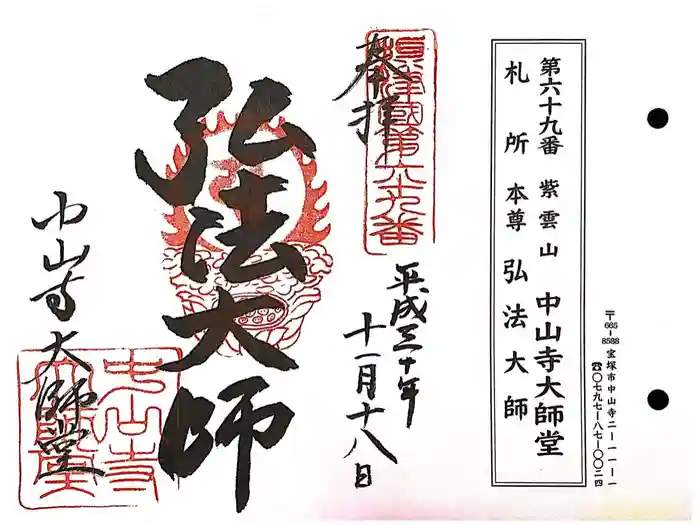 〒665-8588 宝塚市中山寺二-一一-一
☎〇七九七-八七-〇〇二四
第六十九番 紫雲山 中山寺大師堂
札所本尊 弘法大師
奉拝
摂津國第六十九番
平成三十年
十一月十八日
弘法大師
中山寺大師堂
中山寺